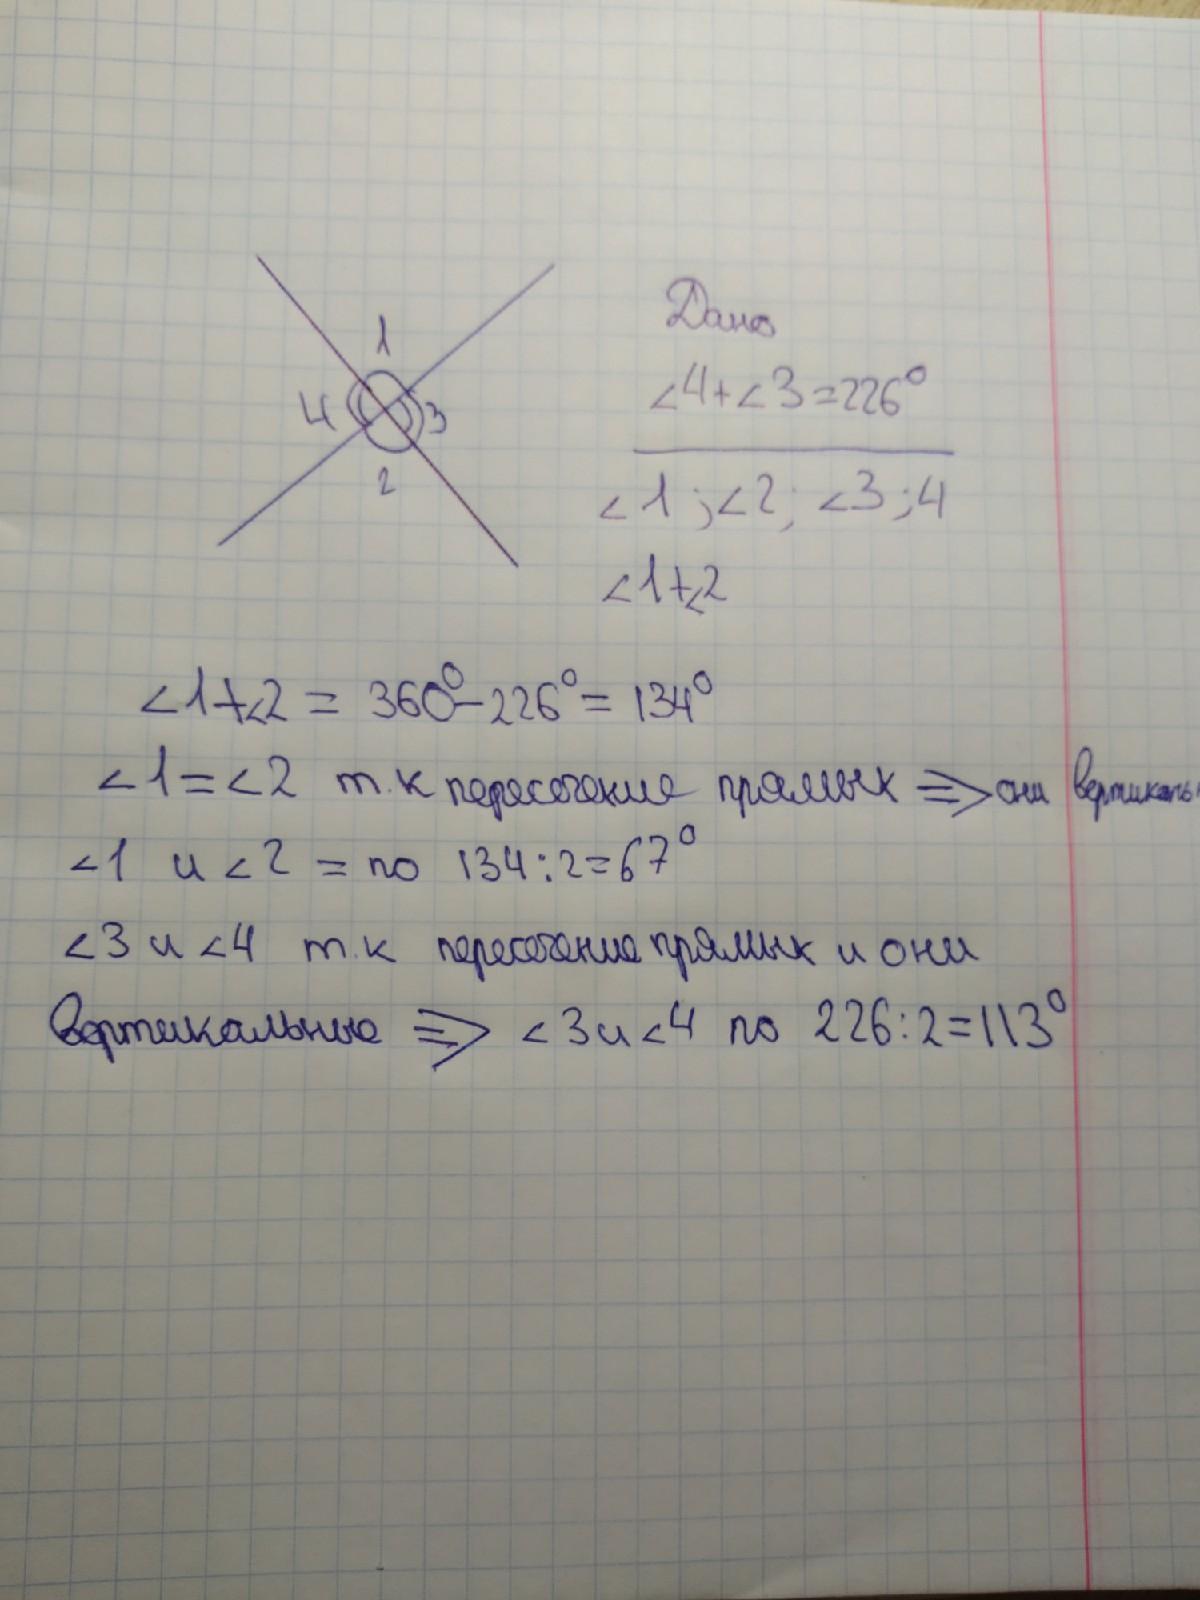 1
4
3
2
Дано
∠4+∠3=226°
∠1;∠2; ∠3;4
∠1+∠2
∠1+∠2 = 360°-226°= 134°
∠1=∠2 т.к пересечение прямых => они
∠1 и ∠2 = по 134:2=67°
∠3 и ∠4 т.к пересечение прямых и они
вертикальные => ∠3 и ∠4 по 226:2=113°